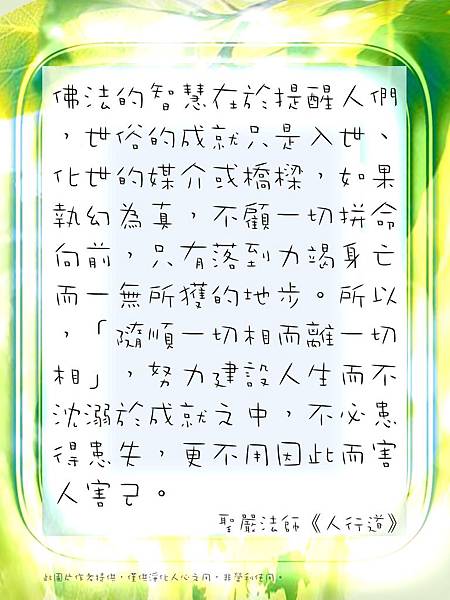 佛法的智慧在於提醒人們
，世俗的成就只是入世、
化世的媒介或橋樑，如果
執幻為真，不顧一切拼命
向前，只有落到力竭身亡
而一無所獲的地步。所以
，「隨順一切相而離一切
相」，努力建設人生而不
沈溺於成就之中，不必患
得患失，更不用因此而害
人害己。
聖嚴法師《人行道》
此圖片作者特供，僅供淨化人心之用，非營利使用。